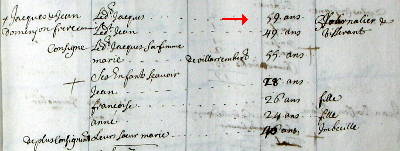 Jacques et Jean Led. Jacques 59 ans Journalier de
frere Led. Jean 49 ans Villerant
Consigne Led. Jacques sa femme
marie de villarrember 55 ans
Ses Enfants Scavoir 28 ans
Jean
francoise 26 ans fille
anne 24 ans fille
de plus Consigne Leur Soeur marie 40 ans Imbecille